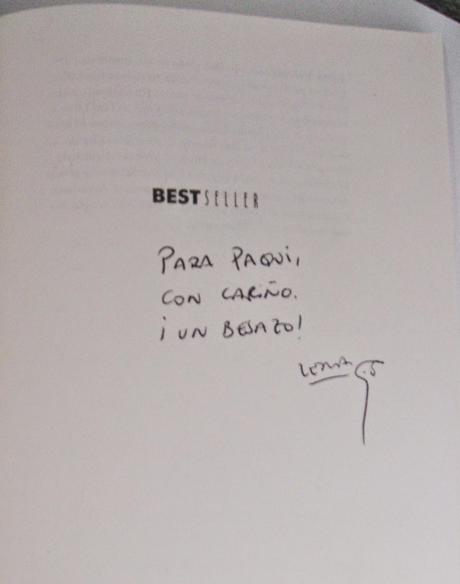 BESTSELLER
PARA PAQUI,
CON CARIÑO.
¡UN BESAZO!